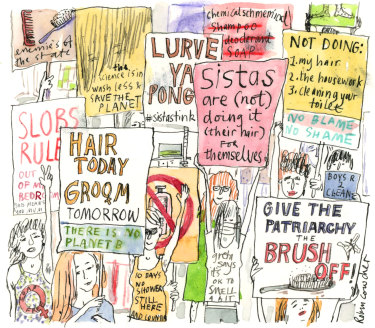 enemies of
the state
the
science is in
wash less &
SAVE THE
PLANET
LURVE
YA
PONG
#sistastink
chemical schmemical
shampoo
deodorant
SOAP
NOT DOING:
1. my hair
2. the housework
3. cleaning your
toilet
NO BLAME
NO SHAME
Sistas
are (not)
doing it
(their hair)
FOR
themselves.
SLOBS
RULE
OUT
OF MY
BEDR
HAIR TODAY
GROOM
TOMORROW
THERE IS NO
PLANET B
10 DAYS
NO
SHOWER
STILL
HERE
says
it's
OK TO
SMELL
A bit
BOYS R
2
CLEAN
GIVE THE
PATRIARCHY
THE
BRUSH
OFF!